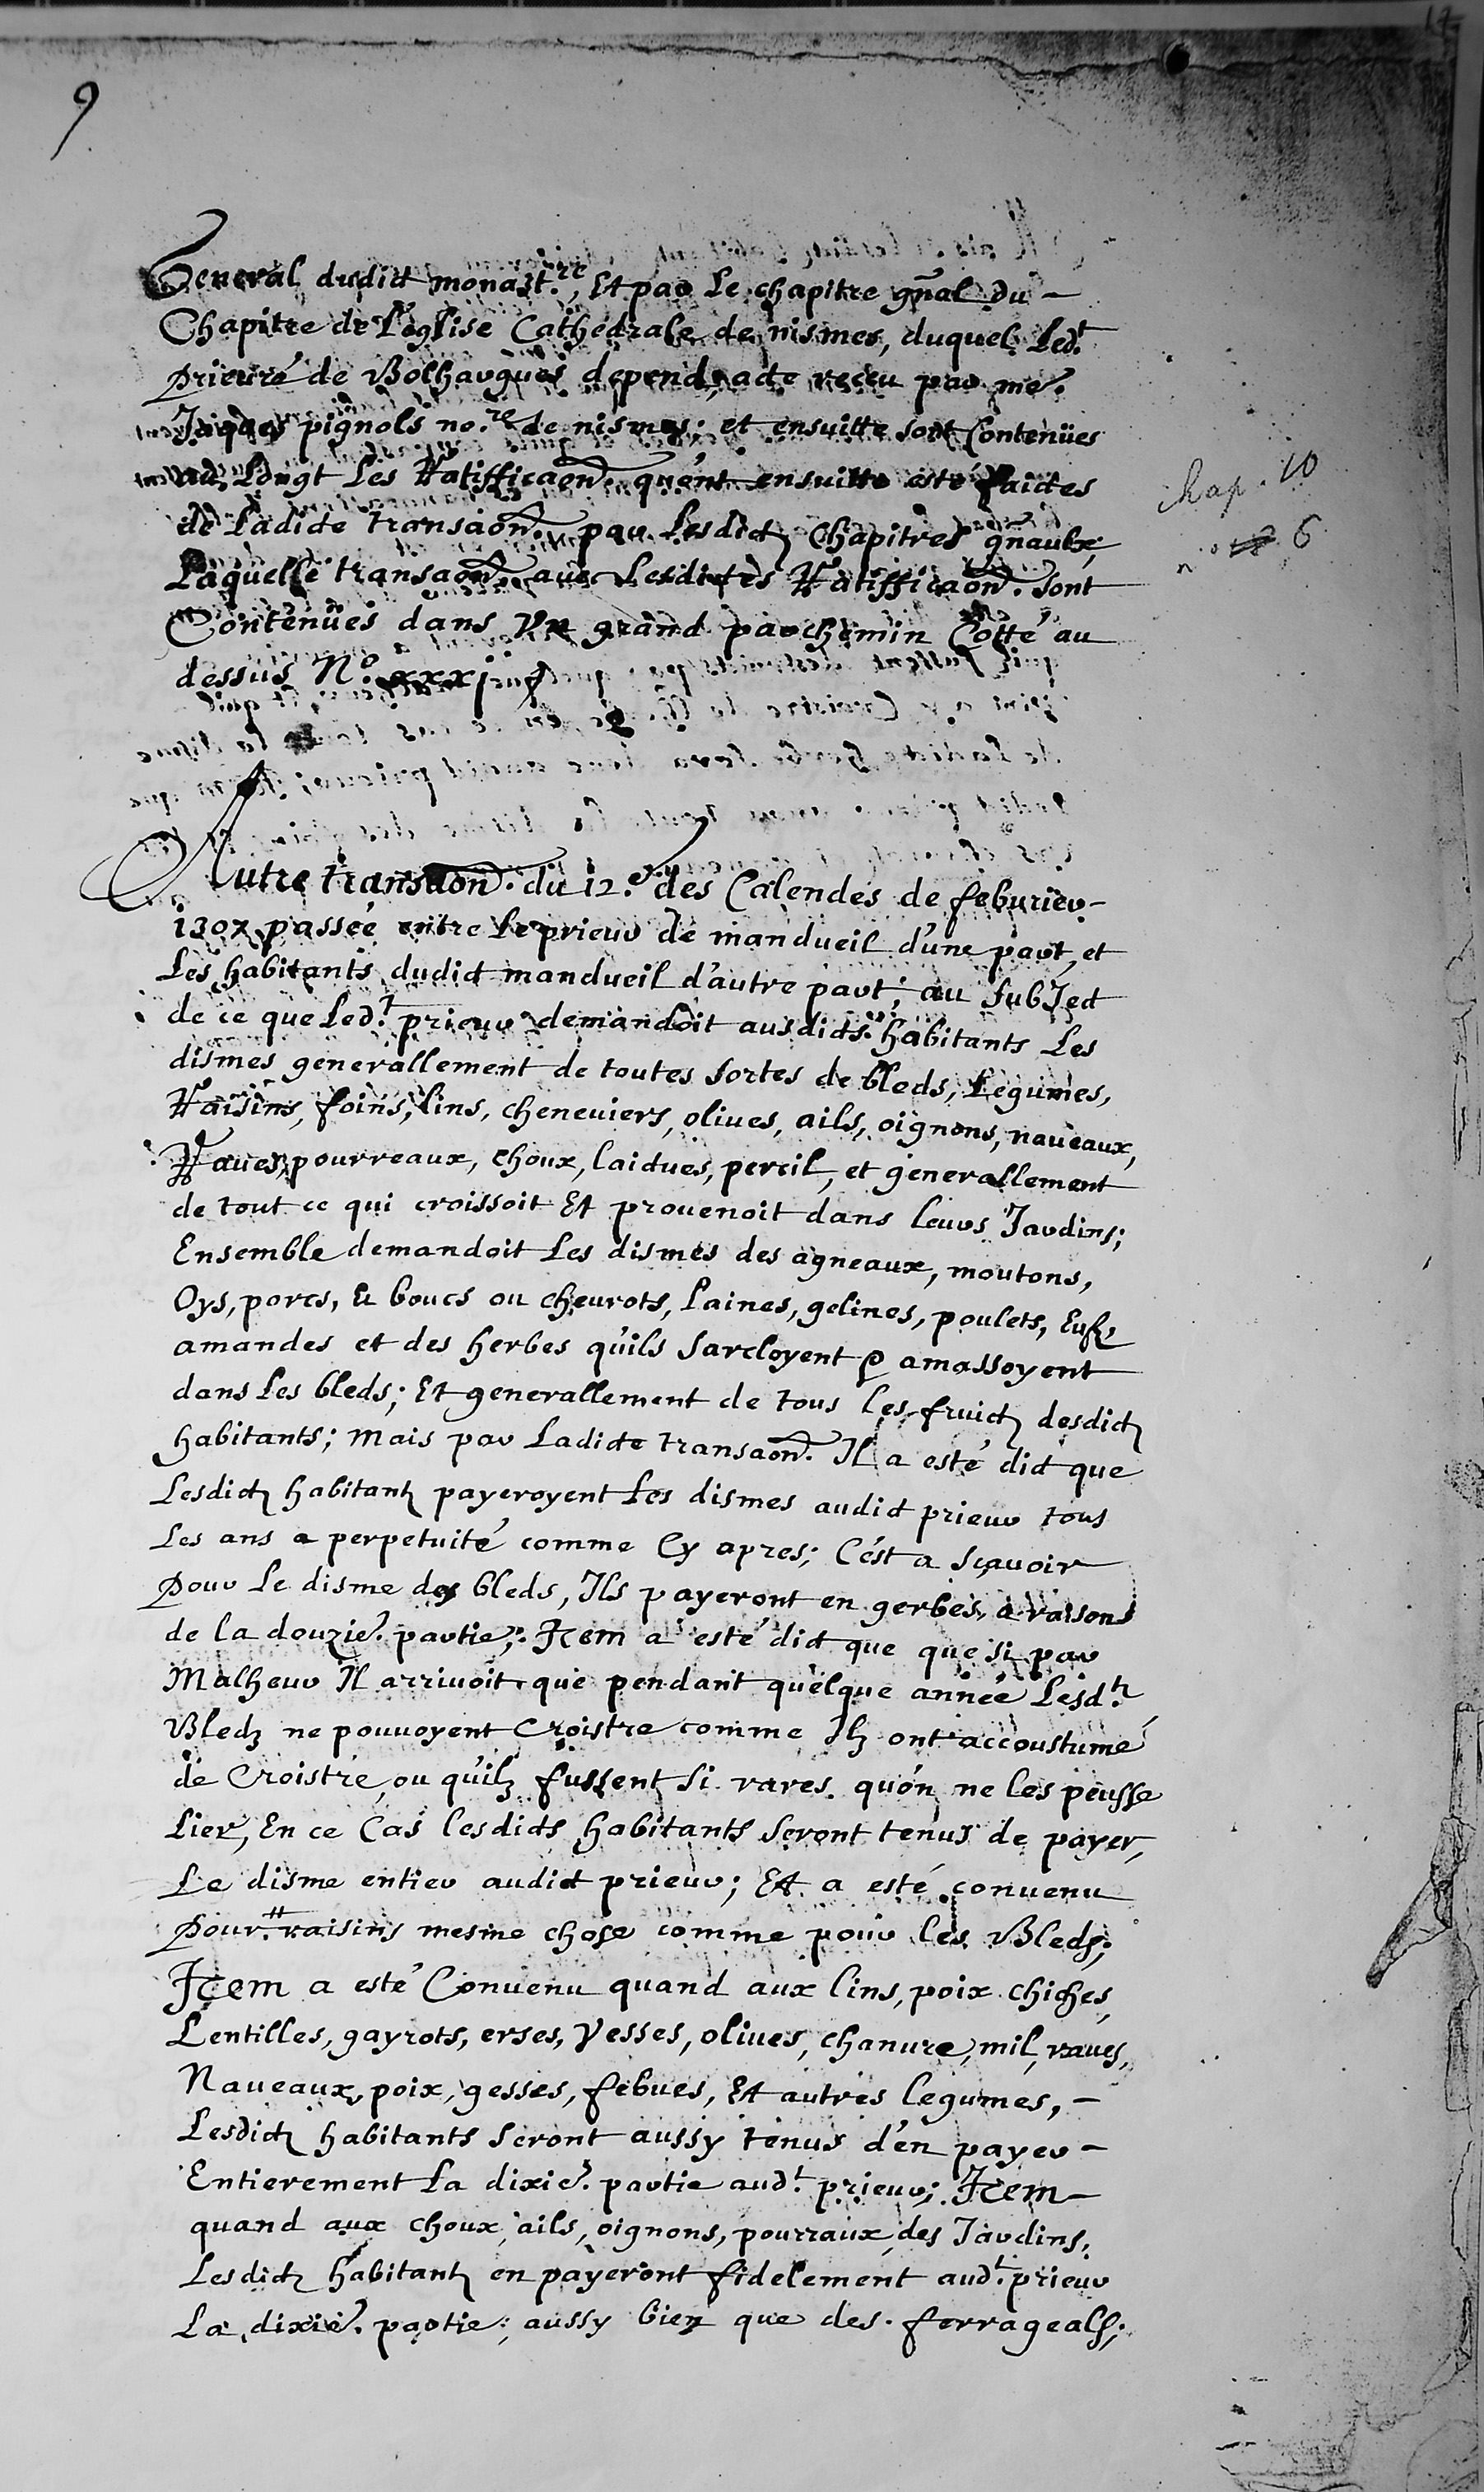 17
9
General dudict monast.re, Et par Le chapitre gñal du -
Chapitre de L'eglise Cathedrale de nismes, duquel Led.t
prieuré de Bolhargues depend, acte receu par me.
Jaques pignols no.re de nismes; et ensuitte sont Contenües
au Longt Les Ratifficaõn. qu'ont ensuitte esté faictes
de Ladicte transaõn. par Lesdictz Chapitres gñaulx;
Laquelle transaõn. avec Lesdictes Ratifficaõn. sont
Contenües dans Vn grand parchemin Cotté au
dessus N.o xxxj
chap. 10
n.o 6
Autre transaõn. du 12.e des Calendes de feburier -
1307 passée entre Le prieur de mandueil d'une part, et
Les habitants dudict mandueil d'autre part; au subJect
de ce que Led.t prieur demandoit ausdicts. habitants Les
dismes generallement de toutes sortes de bleds, Legumes,
Raisins, foins, lins, cheneviers, olives, ails, oignons, naveaux,
Raves, pourreaux, choux, laictues, persil, et generallement
de tout ce qui croissoit Et provenoit dans leurs Jardins;
Ensemble demandoit Les dismes des agneaux, moutons,
Oys, porcs, & boucs ou chevrots, Laines, gelines, poulets, Eufz
amandes et des herbes qu'ils sarcloyent & amassoyent
dans Les bleds; Et generallement de tous les fruictz desdictz
habitants; mais par Ladicte transaõn. Il a esté dict que
Lesdictz habitantz payeroyent Les dismes audict prieur tous
Les ans a perpetuité comme Cy apres; C'est a sçavoir
pour Le disme des bleds, Ils payeront en gerbes, a raisons
de la douzie. partie; Item a esté dict que que si par
Malheur Il arrivoit que pendant quelque année Lesd.tz
Bledz ne pouvoyent Croistre comme Ilz ont accoustumé
de Croistre, ou qu'ilz fussent si rares qu'on ne les peusse
Lier, En ce Cas lesdicts habitants seront tenus de payer,
Le disme entier audict prieur; Et a esté convenu
pour raisins mesme chose comme pour les Bleds;
Item a esté Convenu quand aux lins, poix chiches,
Lentilles, gayrots, erses, Vesses, olives, chanvre, mil, raves,
Naveaux, poix, gesses, febves, Et autres legumes, -
Lesdictz habitants seront aussy tenus d'en payer -
Entierement La dixie. partie aud.t prieur; Item -
quand aux choux, ails, oignons, pourraux, des Jardins,
Lesdictz habitantz en payeront fidelement aud.t prieur
La dixie. partie; aussy bien que des ferragealz;